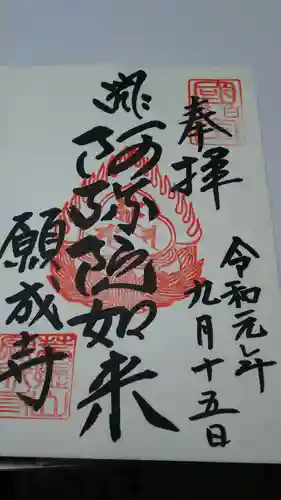 奉拝
令和元年
九月十五日
阿弥陀如来
願成寺